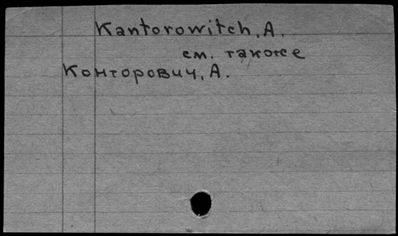 Kantorowitch, A.
см. также
Конторович, А.